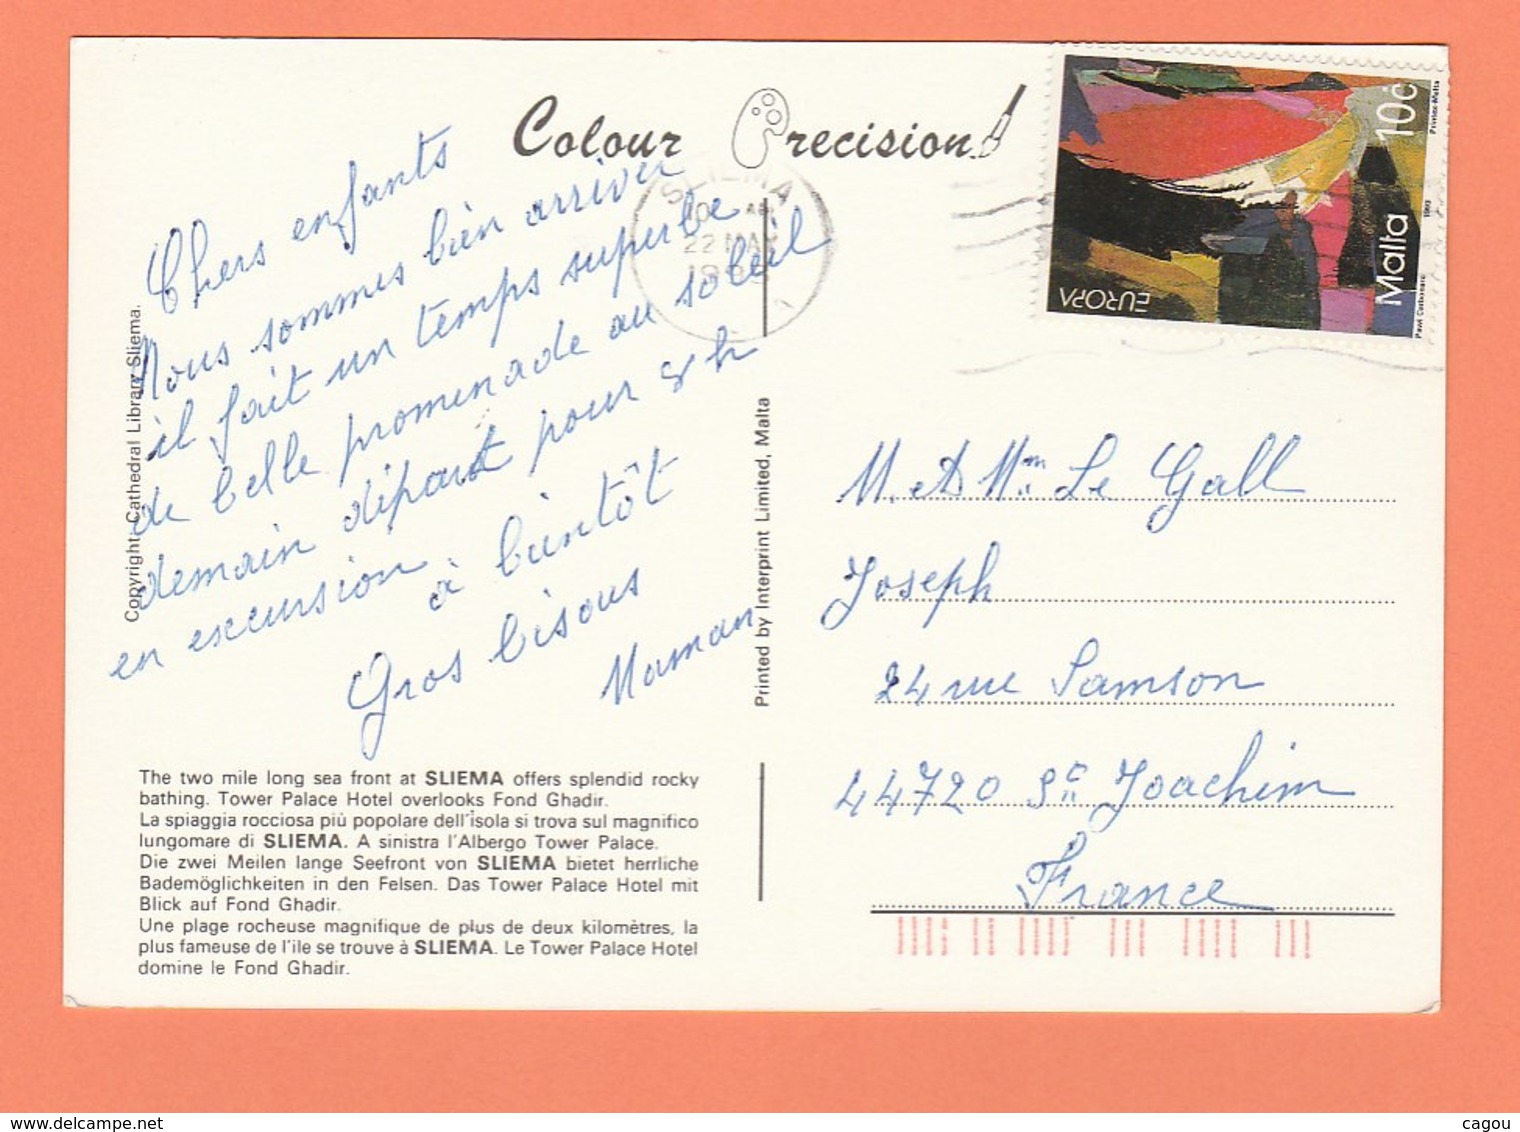 Colour Precision
SLIEMA
22 MAY
EUROPA
Malta 10c
1993
Pawl Carbonaro
Printex-Malta
Chers enfants
Nous sommes bien arriver
il fait un temps superbe
de belle promenade au soleil
demain départ pour 8h
en excursion
à bientôt
Gros bisous
Maman
Copyright: Cathedral Library Sliema.
Printed by Interprint Limited, Malta
M. et Mme Le Gall
Joseph
24 rue Samson
44720 St Joachim
France
The two mile long sea front at SLIEMA offers splendid rocky
bathing. Tower Palace Hotel overlooks Fond Ghadir.
La spiaggia rocciosa più popolare dell'isola si trova sul magnifico
lungomare di SLIEMA. A sinistra l'Albergo Tower Palace.
Die zwei Meilen lange Seefront von SLIEMA bietet herrliche
Bademöglichkeiten in den Felsen. Das Tower Palace Hotel mit
Blick auf Fond Ghadir.
Une plage rocheuse magnifique de plus de deux kilomètres, la
plus fameuse de l'ile se trouve à SLIEMA. Le Tower Palace Hotel
domine le Fond Ghadir.
cagou